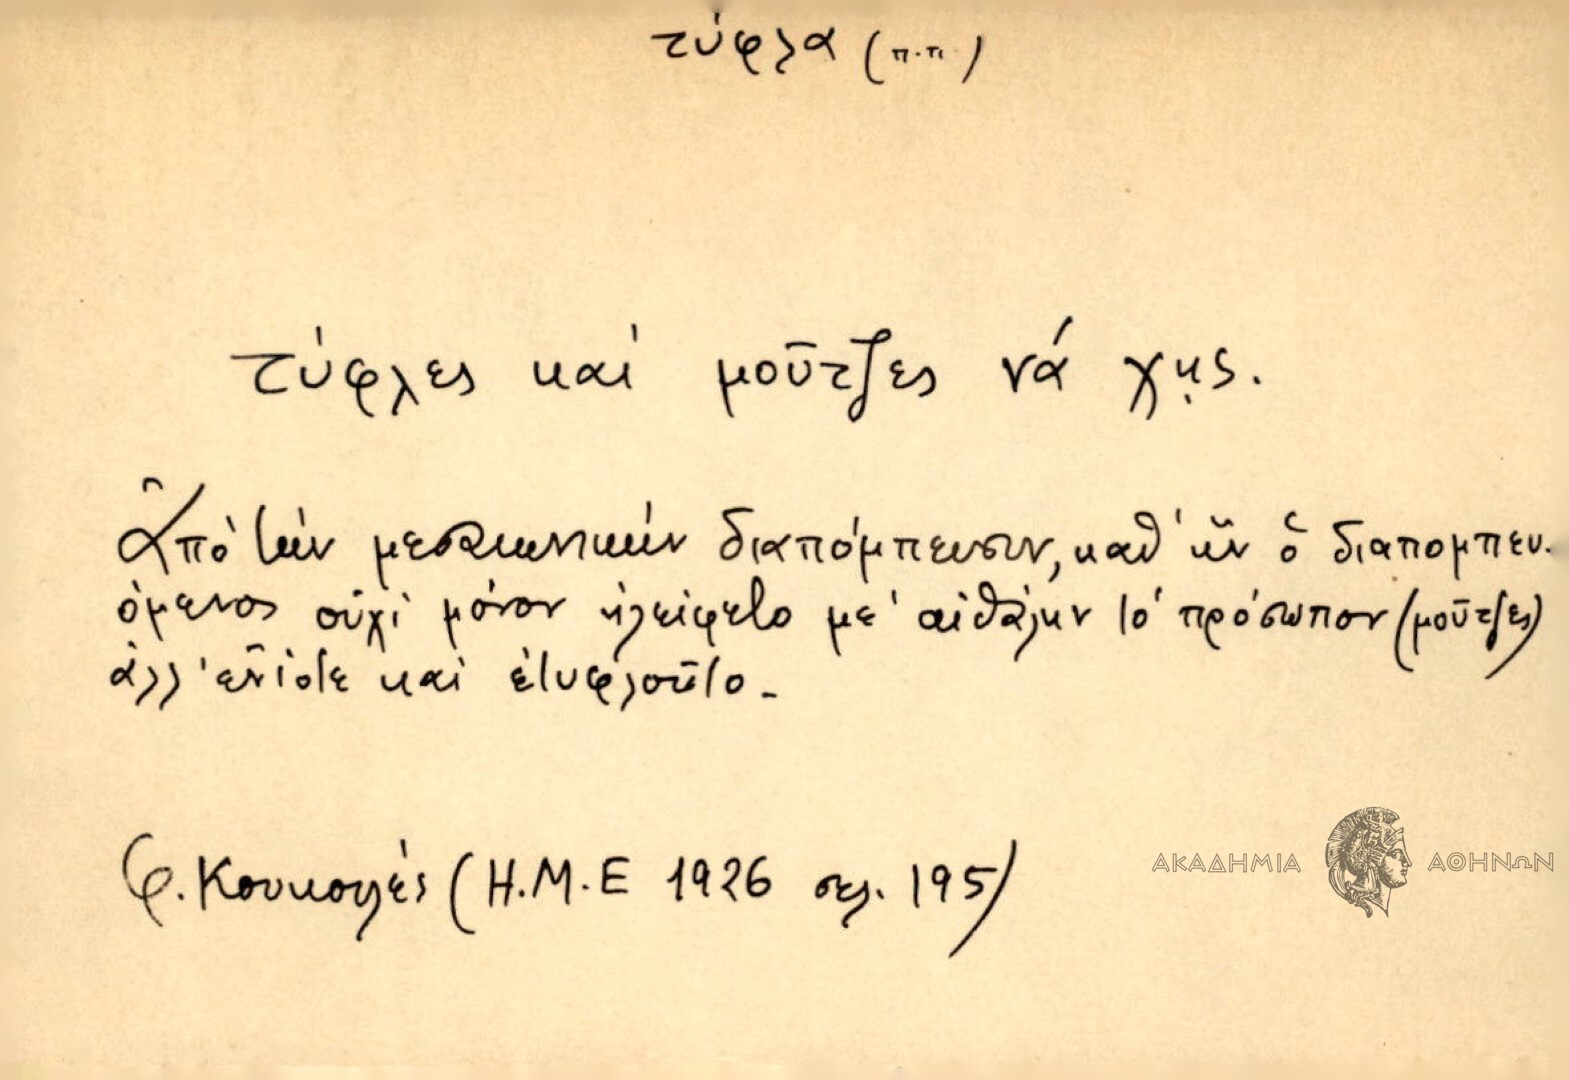 τύφλα (π.π)
τύφλες καί μοῦτζες νά χῃς.
Ἀπό τήν μεσαιωνικήν διαπόμπευσιν, καθ' ἥν ὁ διαπομπευ-
όμενος οὐχί μόνον ἠλείφετο μέ αἰθάλην τό πρόσωπον (μοῦτζες)
ἀλλ' ἐνίοτε καί ἐτυφλοῦτο.
Φ. Κουκουλές (Η.Μ.Ε 1926 σελ. 195)
ΑΚΑΔΗΜΙΑ ΑΘΗΝΩΝ